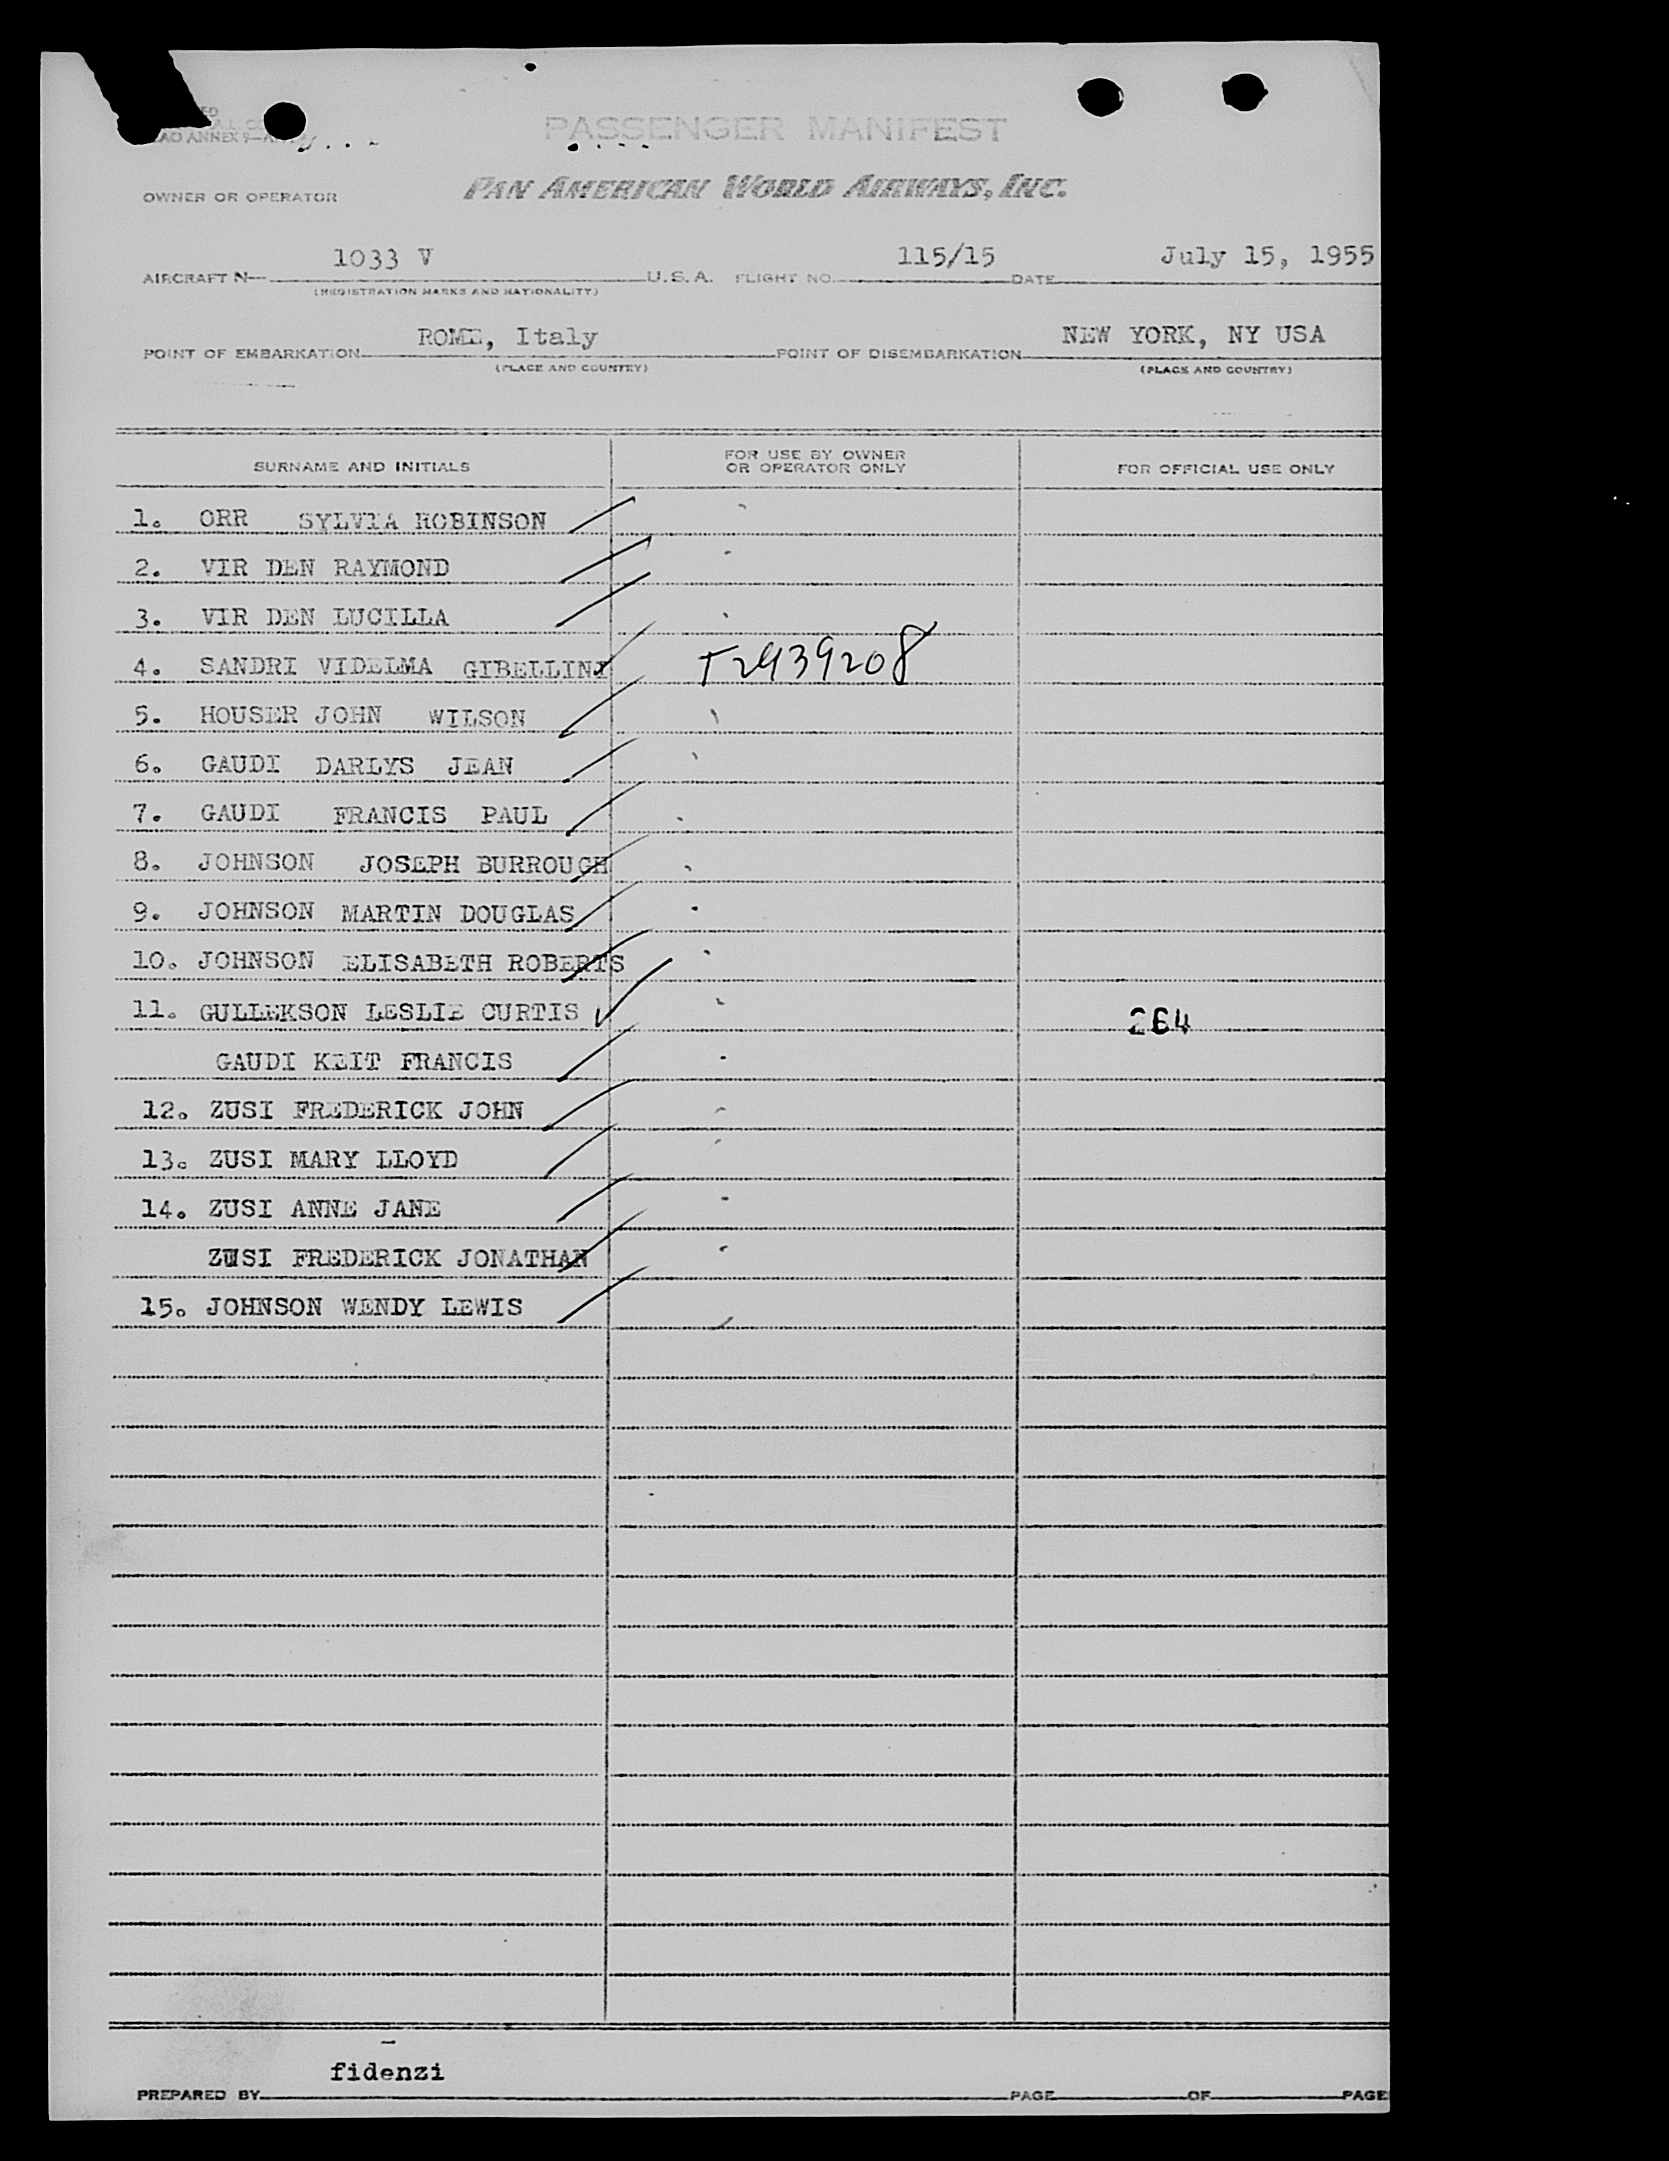 PASSENGER MANIFEST
OWNER OR OPERATOR PAN AMERICAN WORLD AIRWAYS, INC.
AIRCRAFT N— 1033 V U.S.A. FLIGHT NO. 115/15 DATE July 15, 1955
(REGISTRATION MARKS AND NATIONALITY)
POINT OF EMBARKATION ROME, Italy POINT OF DISEMBARKATION NEW YORK, NY USA
(PLACE AND COUNTRY) (PLACE AND COUNTRY)
SURNAME AND INITIALS FOR USE BY OWNER OR OPERATOR ONLY FOR OFFICIAL USE ONLY
1. ORR SYLVIA ROBINSON
2. VIR DEN RAYMOND
3. VIR DEN LUCILLA
4. SANDRI VIDELMA GIBELLINI T2939208
5. HOUSER JOHN WILSON
6. GAUDI DARLYS JEAN
7. GAUDI FRANCIS PAUL
8. JOHNSON JOSEPH BURROUGH
9. JOHNSON MARTIN DOUGLAS
10. JOHNSON ELISABETH ROBERTS
11. GULLEKSON LESLIE CURTIS 264
GAUDI KEIT FRANCIS
12. ZUSI FREDERICK JOHN
13. ZUSI MARY LLOYD
14. ZUSI ANNE JANE
ZUSI FREDERICK JONATHAN
15. JOHNSON WENDY LEWIS
fidenzi
PREPARED BY PAGE OF PAGE